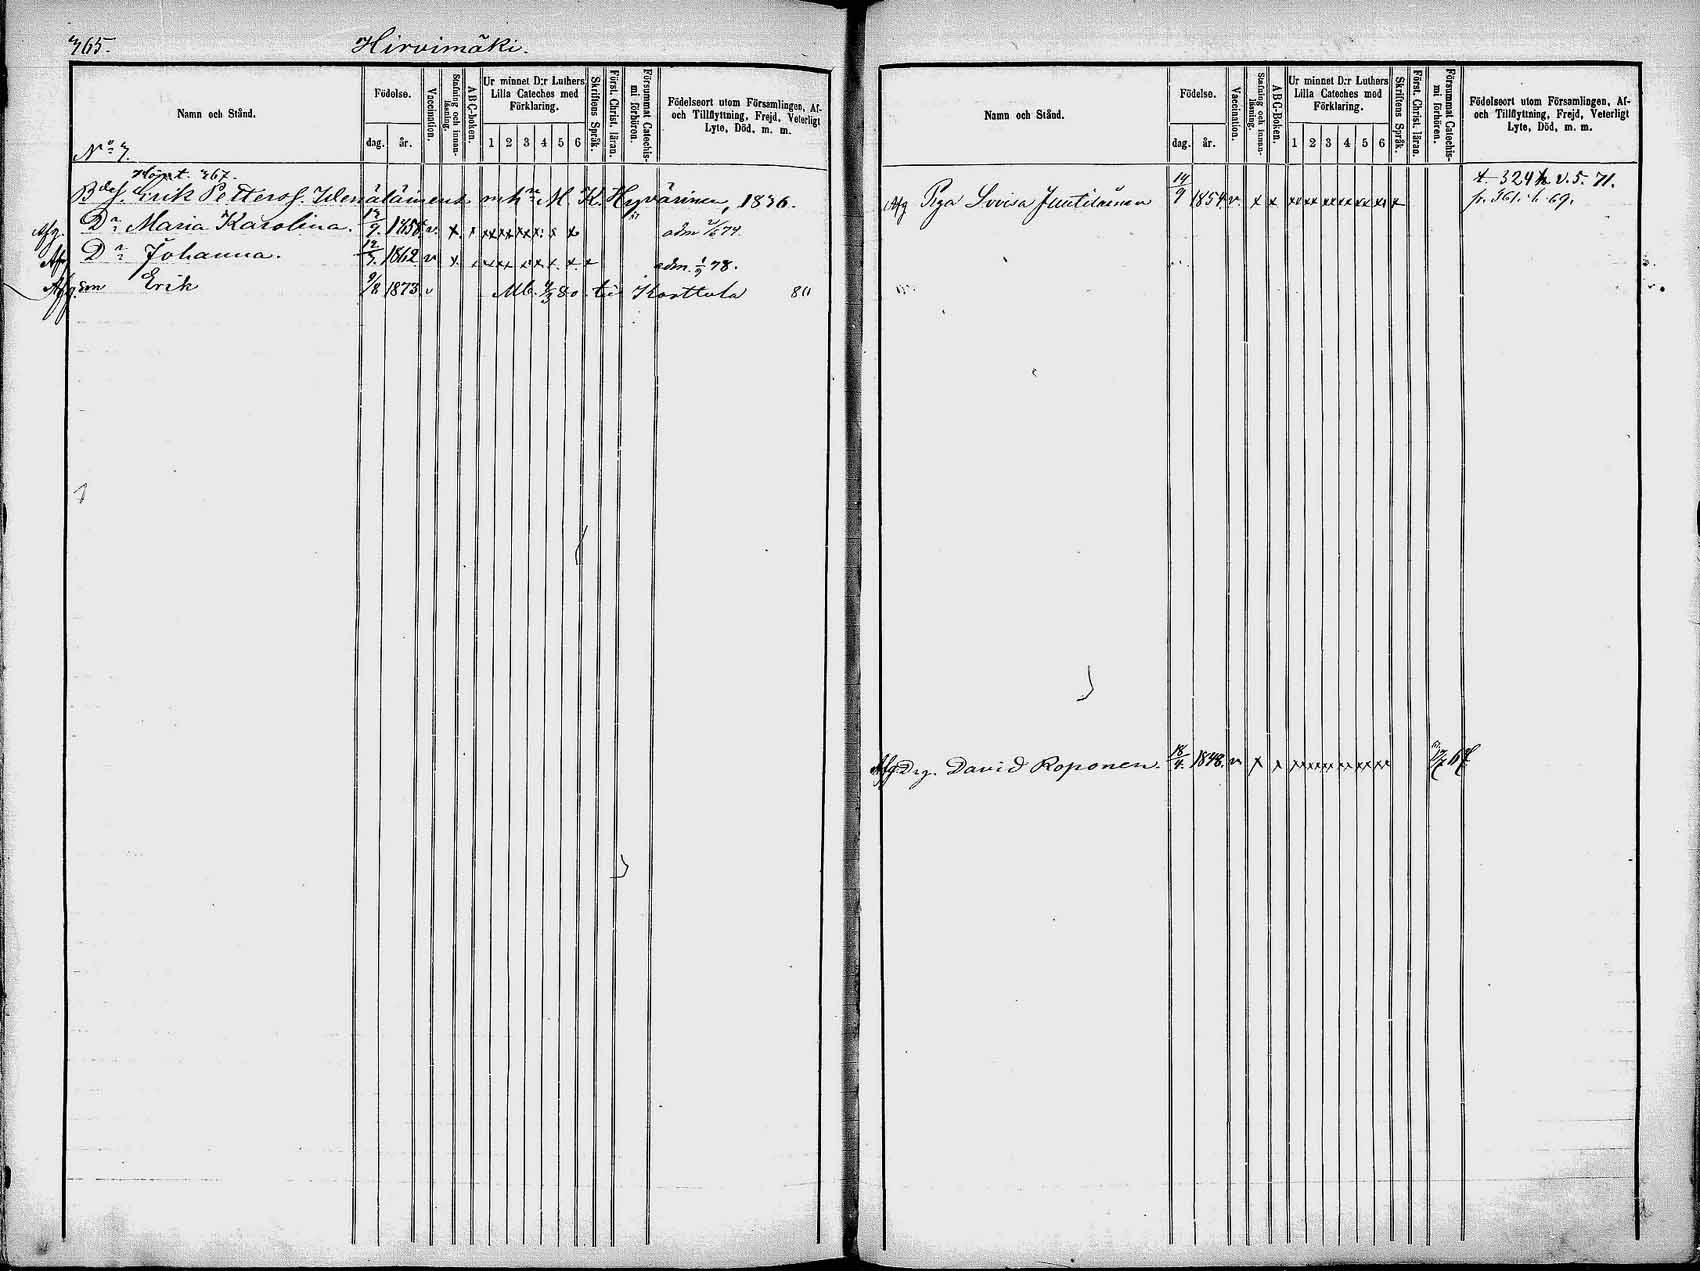 365. Hirvimäki.
Namn och Stånd.
Födelse.
dag. år.
Vaccination.
Stafning och innan-läsning.
ABC-boken.
Ur minnet D:r Luthers Lilla Cateches med Förklaring.
1 2 3 4 5 6
Skriftens Språk.
Först. Christ. läran.
Försummat Catechis-mi förhören.
Födelseort utom Församlingen, Af- och Tillflyttning, Frejd, Veterligt Lyte, Död, m. m.
No 7.
367.
Erik Petterss. M. K. Hyvärinen, 1836.
Afg. Dr Maria Karolina. 9. 1858 v. x x xx xx xx adm 74
Afg. Dr Johanna. 12/7. 1862 v x. adm. 78.
Afg. Son Erik 9/8 1873. v Mb. 80. till Karttula 80
Namn och Stånd.
Födelse.
dag. år.
Vaccination.
Stafning och innan-läsning.
ABC-Boken.
Ur minnet D:r Luthers Lilla Cateches med Förklaring.
1 2 3 4 5 6
Skriftens Språk.
Först. Christ. läran.
Försummat Catechis-mi förhören.
Födelseort utom Församlingen, Af- och Tillflyttning, Frejd, Veterligt Lyte, Död, m. m.
Afg Piga Lovisa Juutilainen 14/9 1854. v. x x xx xx xx xx xx xx x 324 v. 5. 71.
fr. 361. 69.
Afg. Drg. David Roponen. 18/4. 1848. v x x xx xx xx xx xx xx 67